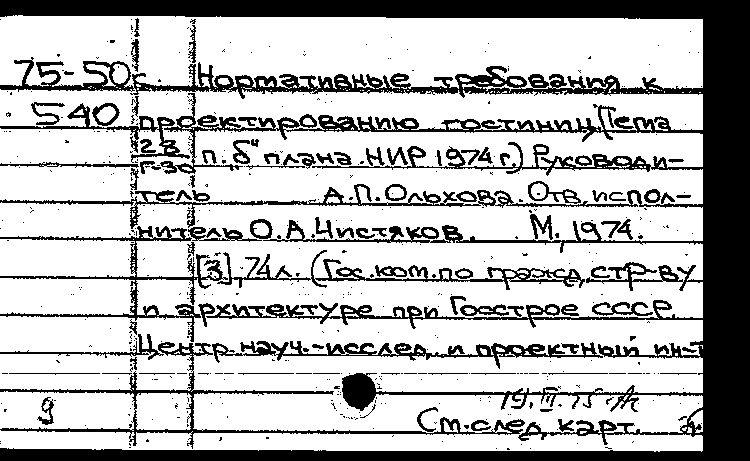 75-50с. Нормативные требования к
540 проектированию гостиниц. (Тема
28 Г-30 п. „б“ плана НИР 1974 г.) Руководи-
тель А.П. Ольхова. Отв. испол-
нитель О.А. Чистяков. М., 1974.
[3], 74 л. (Гос. ком. по гражд. стр-ву
и архитектуре при Госстрое СССР.
Центр. науч.-исслед. и проектный ин-т
19.III.75
9 См. след. карт.